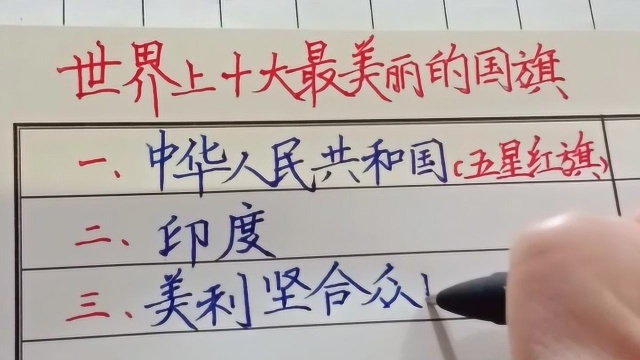 世界上十大最美丽的国旗
一、中华人民共和国(五星红旗)
二、印度
三、美利坚合众